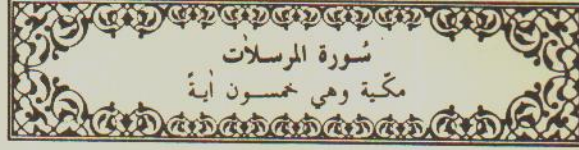 سُورة المرسلاٰت
مكّية وهي خمسون اٰيةً